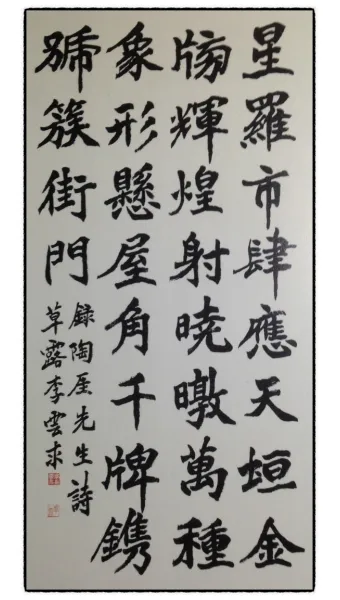 星羅市肆應天垣金
牓輝煌射曉暾萬種
象形懸屋角千牌鐫
號簇街門
録陶厓先生詩
草露李雲求